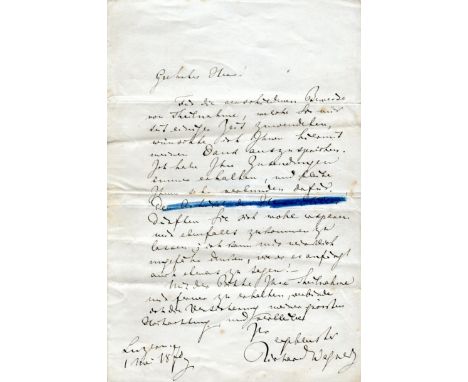 Geehrter Herr!
Für die verschiedenen Beweise
von Theilnahme, welche Sie mir
seit einiger Zeit zuwendeten,
wünschte ich Ihnen hiermit
meinen Dank auszusprechen.
Ich habe Ihre Zusendungen
immer erhalten, und bleibe
Ihnen sehr verbunden dafür.
Den
dürften Sie sich wohl ersparen
mir ebenfalls zukommen zu
lassen; ich kann mir nämlich
ungefähr denken, wie es anfängt
auch etwas zu sagen!
Mit der Bitte Ihre Theilnahme
mir ferner zu erhalten, verbinde
ich die Versicherung meiner grössten
Hochachtung, und verbleibe
Ihr
ergebenster
Richard Wagner
Luzern
1